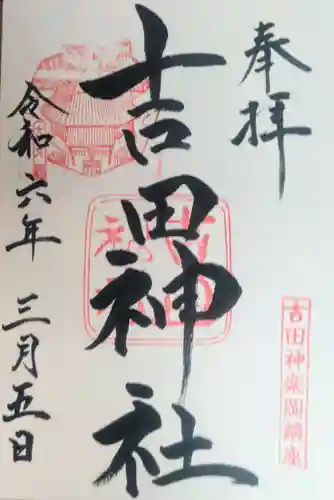 奉拝
吉田神社
令和六年三月五日
吉田神楽岡鎮座
吉田神社